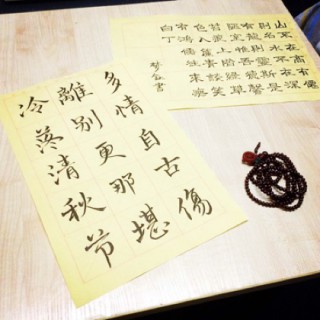 多情自古傷
離別更那堪
冷落清秋节
山不在高有仙
則名水不在深
有龍則靈斯是
陋室惟吾德馨
苔痕上階綠草
色入簾青談笑
有鴻儒往來無
白丁